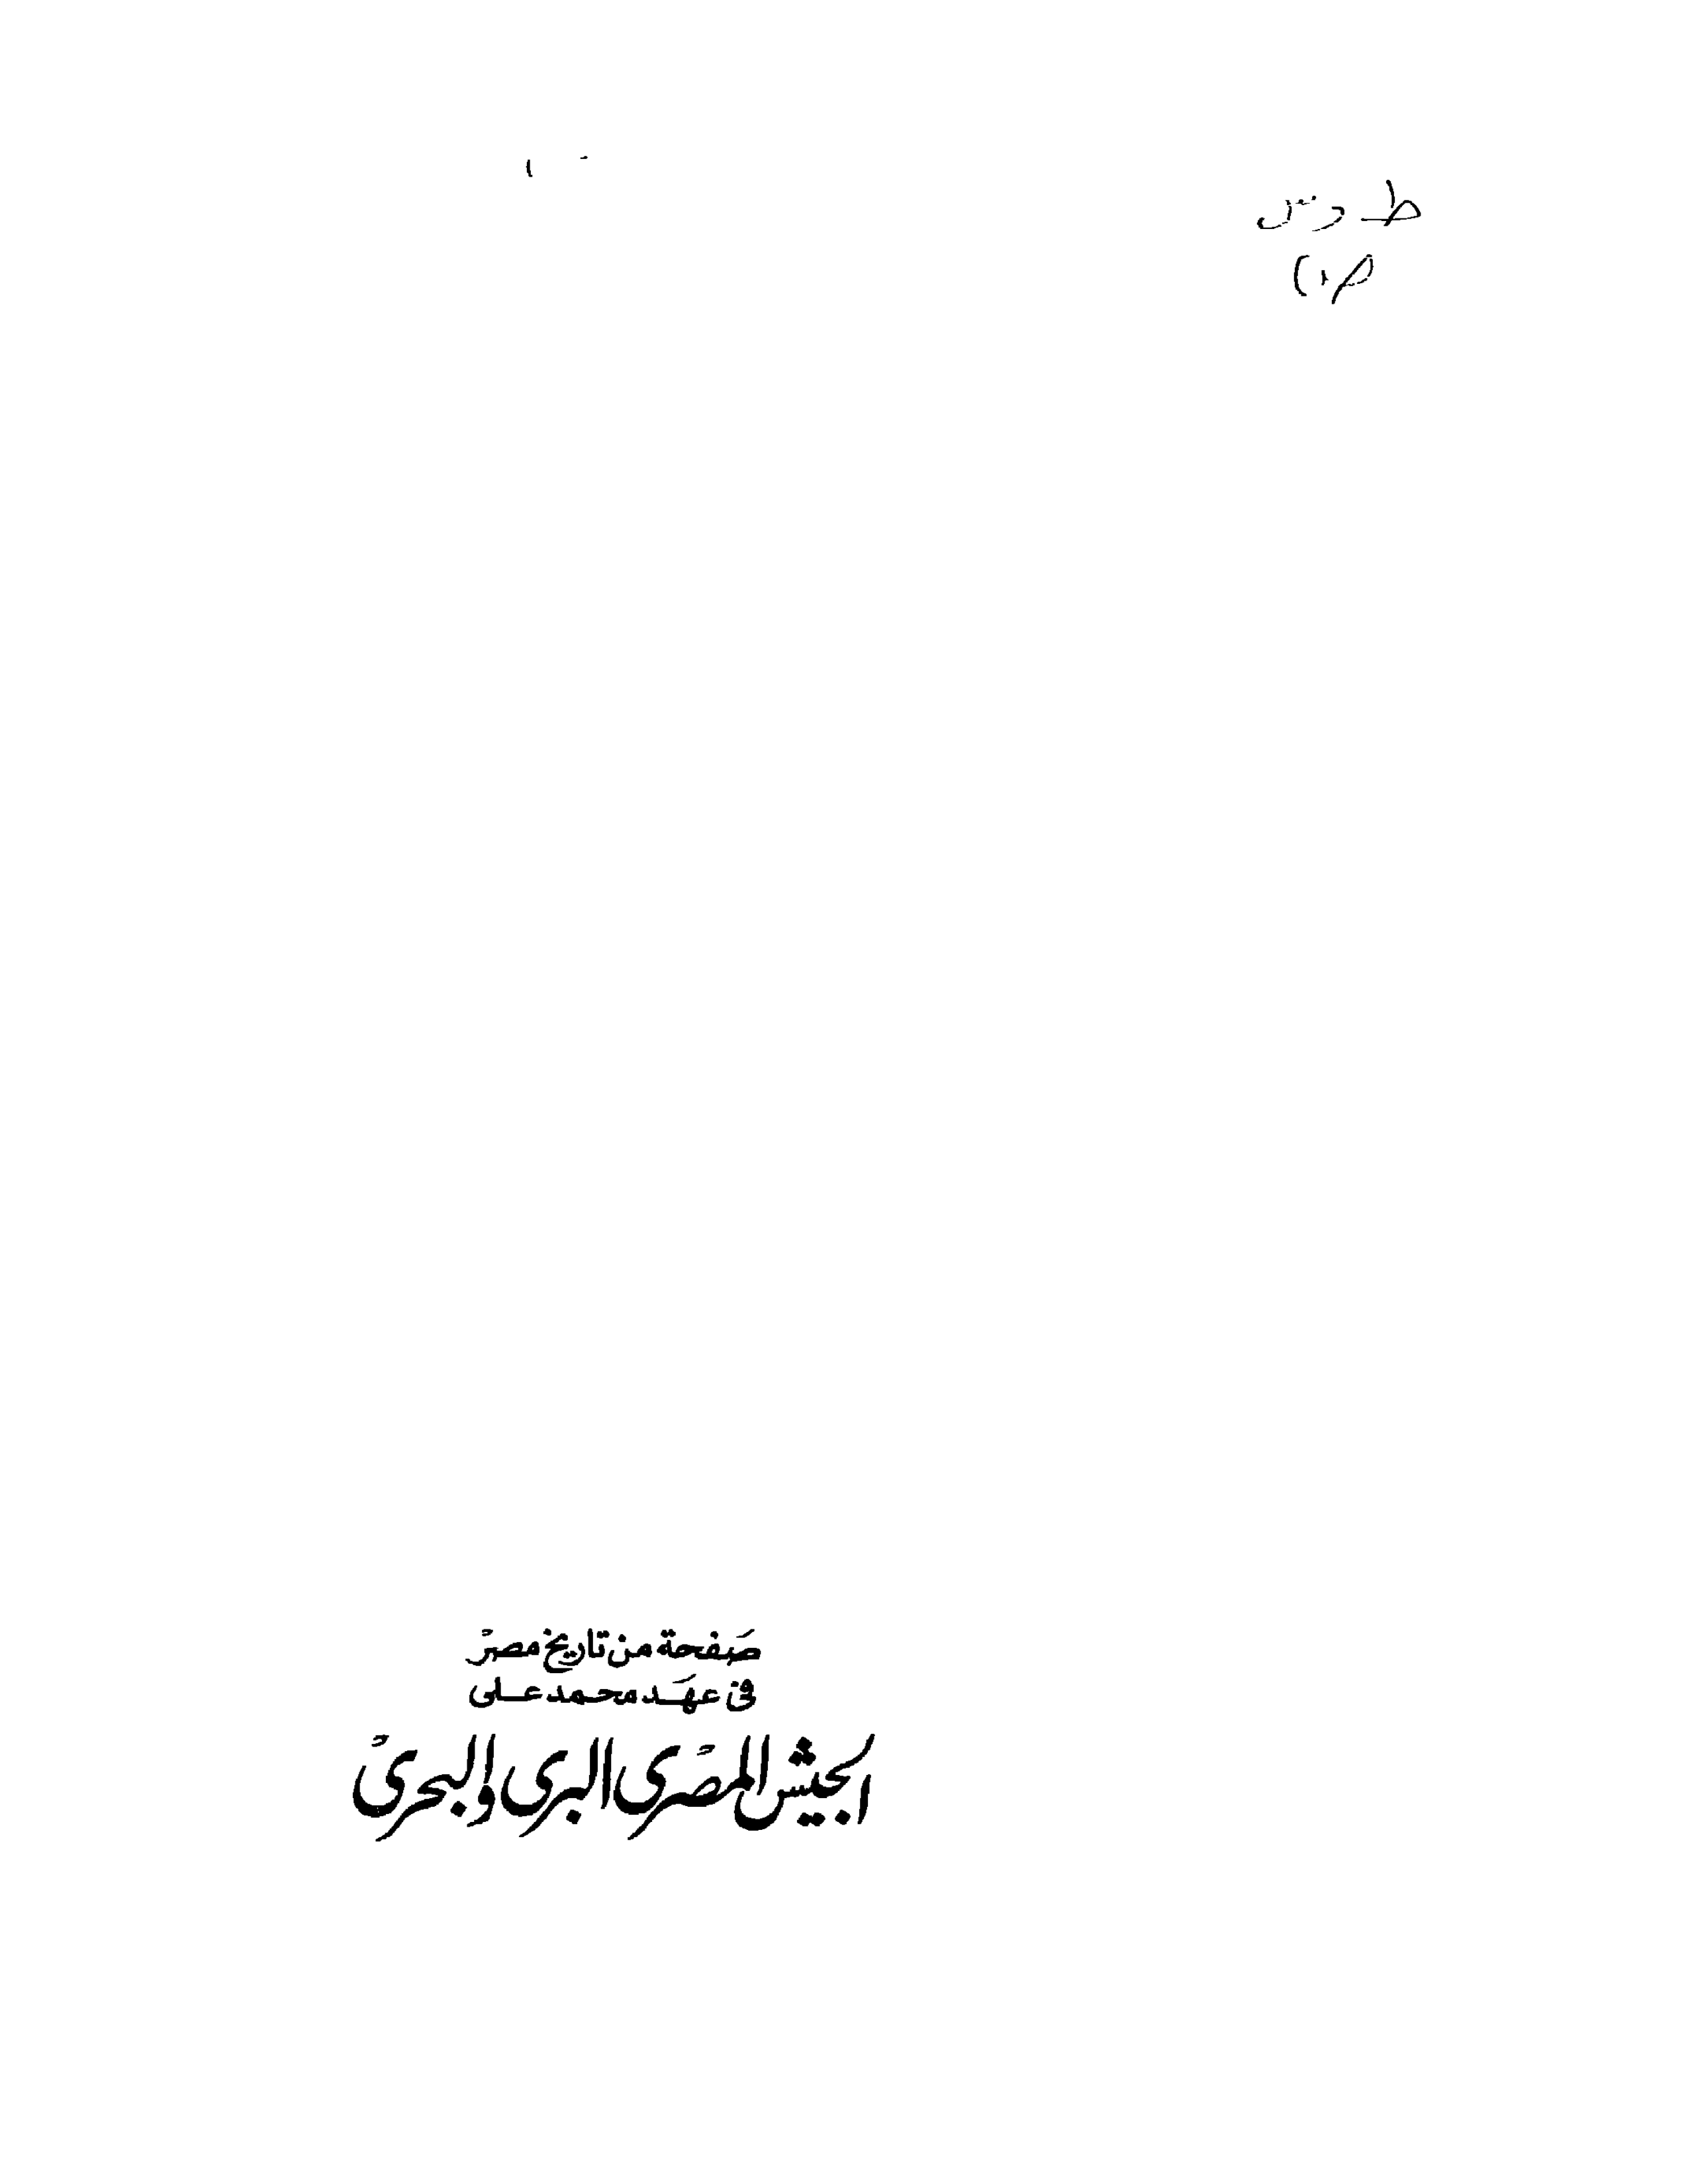 صفحة من تاريخ مصر
فى عهد محمد على
الجيش المصرى البرى والبحرى